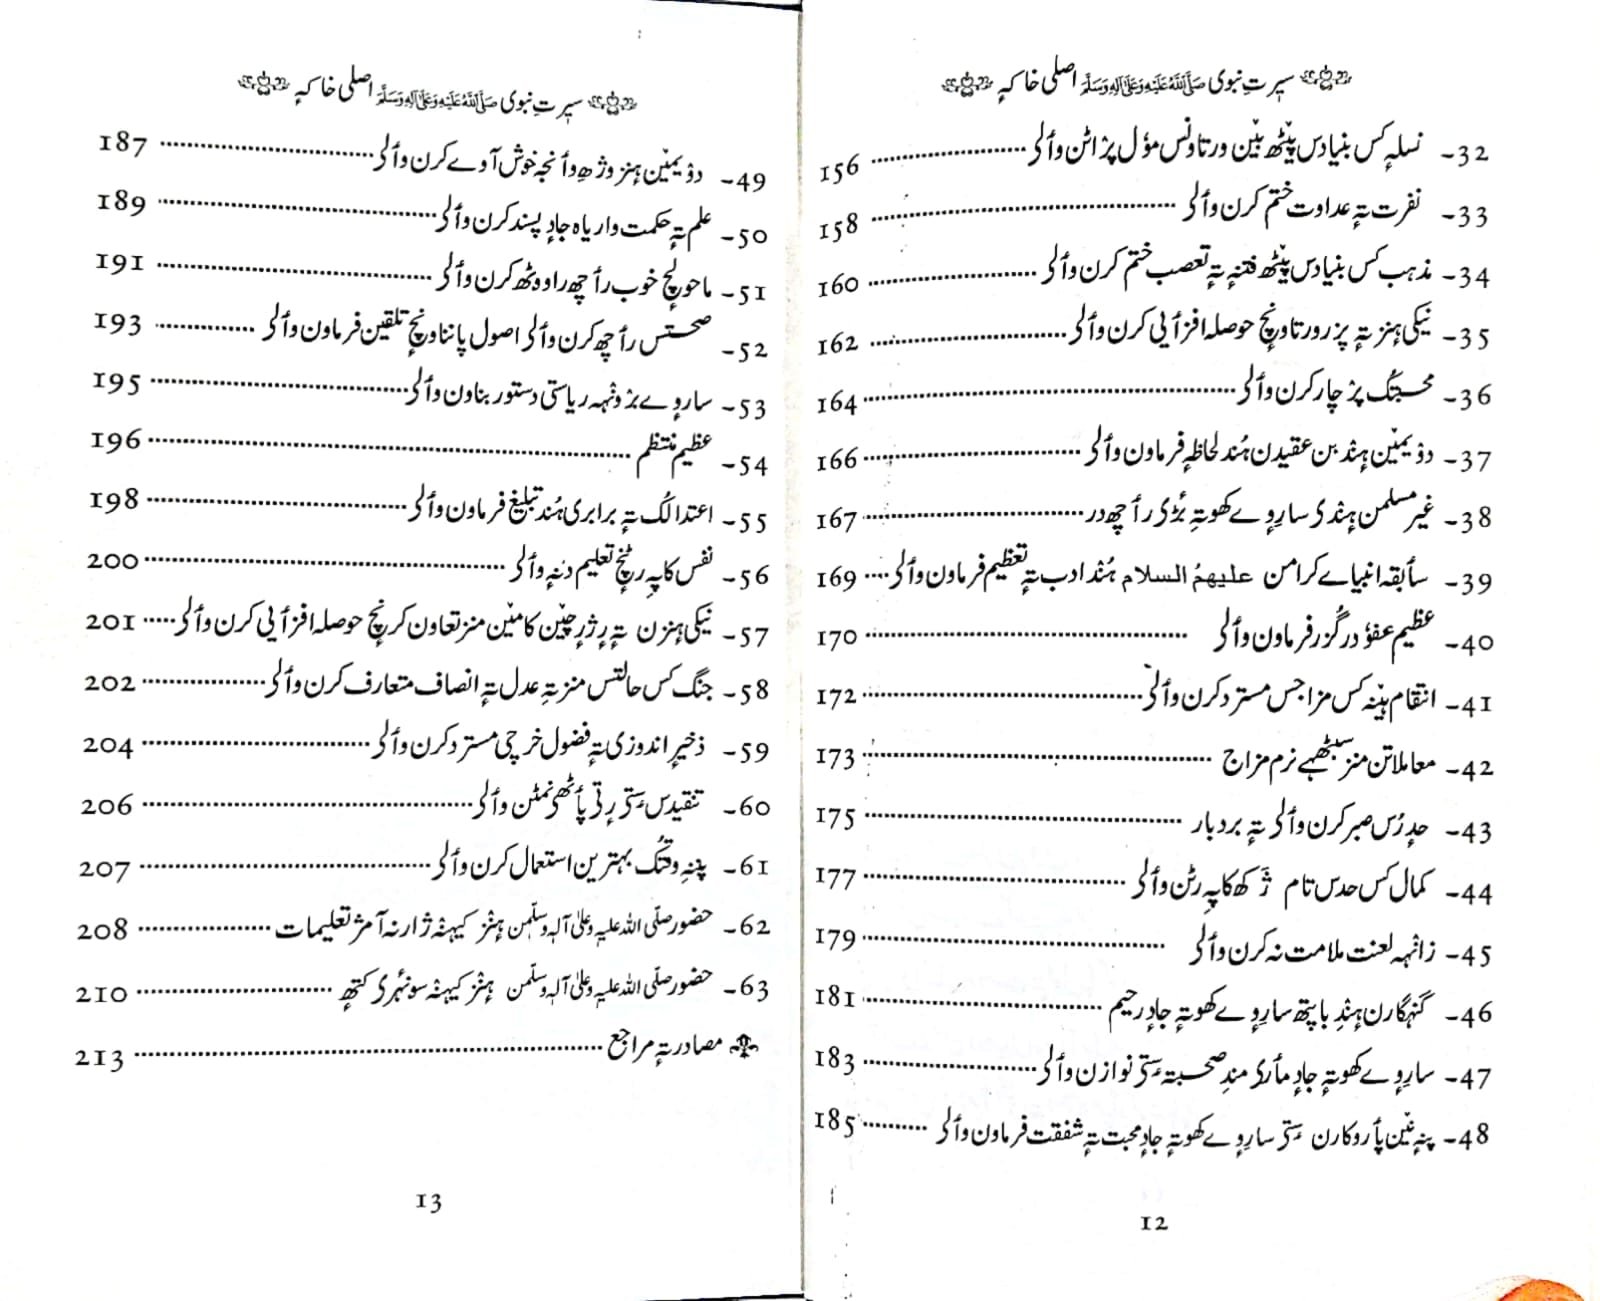 سیرتِ نبوی صَلَّى اللهُ عَلَيْهِ وَعَلَىٰ آلِهِ وَسَلَّمَ اصلی خاکہٕ
32- نسلہٕ کس بنیادس پیٚٹھ بیٚن ورتاونس موٗل پژاٹن وٲلۍ 156
33- نفرت تہٕ عداوت ختم کرن وٲلۍ 158
34- مذہب کس بنیادس پیٚٹھ فتنہٕ تہٕ تعصب ختم کرن وٲلۍ 160
35- نیکی ہنز تہٕ پزر ورتاونٕچ حوصلہ افزٲیی کرن وٲلۍ 162
36- محبتُک پرٛچار کرن وٲلۍ 164
37- دۄیمیٚن ہنٛد بن عقیدن ہُند لحاظہٕ فرماون وٲلۍ 166
38- غیر مسلمن ہنٛدۍ سارِوٕے کھوتہٕ بٔڑۍ رٲچھ در 167
39- سٲبقہ انبیاے کرامن علیہمُ السلام ہُند ادب تہٕ تعظیم فرماون وٲلۍ 169
40- عظیم عفوٗ درگُزر فرماون وٲلۍ 170
41- انتقام ہیٚنہٕ کس مزاجس مسترد کرن وٲلۍ 172
42- معاملاتن منز سیٚٹھہے نرم مزاج 173
43- حدٕرُس صبر کرن وٲلۍ تہٕ بردبار 175
44- کمال کس حدس تام ژَکھ کاپہِ رٹن وٲلۍ 177
45- زانٛہہ لعنت ملامت نہ کرن وٲلۍ 179
46- گنہگارن ہنٛدِ باپتھ سارِوٕے کھوتہٕ جادٕ رحیم 181
47- سارِوٕے کھوتہٕ جادٕ مٲرۍ مندِ صحبتہٕ سٟتۍ نوازن وٲلۍ 183
48- پنہٕ نیٚن پٲروکارن سٟتۍ سارِوٕے کھوتہٕ جادٕ محبت تہٕ شفقت فرماون وٲلۍ 185
12
سیرتِ نبوی صَلَّى اللهُ عَلَيْهِ وَعَلَىٰ آلِهِ وَسَلَّمَ اصلی خاکہٕ
49- دۄیمیٚن ہنز وژھ وٲنجہ خوش آوے کرن وٲلۍ 187
50- علم تہٕ حکمت واریاہ جادٕ پسند کرن وٲلۍ 189
51- ماحولٕچ خوب رٲچھ راوٹھ کرن وٲلۍ 191
52- صحتس رٲچھ کرن وٲلۍ اصول پانناونٕچ تلقین فرماون وٲلۍ 193
53- سارِوٕے برٛونٛہہ ریاستی دستور بناون وٲلۍ 195
54- عظیم منتظم 196
55- اعتدالُک تہٕ برابری ہُند تبلیغ فرماون وٲلۍ 198
56- نفس کاپہِ رٹنٕچ تعلیم دنہٕ وٲلۍ 200
57- نیکی ہنزن تہٕ رٕژرٕچیٚن کامیٚن منز تعاون کرنٕچ حوصلہ افزٲیی کرن وٲلۍ 201
58- جنگ کس حالتس منز تہِ عدل تہٕ انصاف متعارف کرن وٲلۍ 202
59- ذخیرٕ اندوزی تہٕ فضول خرچی مسترد کرن وٲلۍ 204
60- تنقیدس سٟتۍ رٕتۍ پٲٹھۍ نمٹن وٲلۍ 206
61- پننہِ وقتُک بہترین استعمال کرن وٲلۍ 207
62- حضور صلّی اللہ علیہ وعلیٰ آلہٖ وسلّمن ہنٛزٕ کیہنٛہ ژارنہ آمژ تعلیمات 208
63- حضور صلّی اللہ علیہ وعلیٰ آلہٖ وسلّمن ہنٛزٕ کیہنٛہ سونٛہرۍ کتھہٕ 210
مصادر تہٕ مراجع 213
13